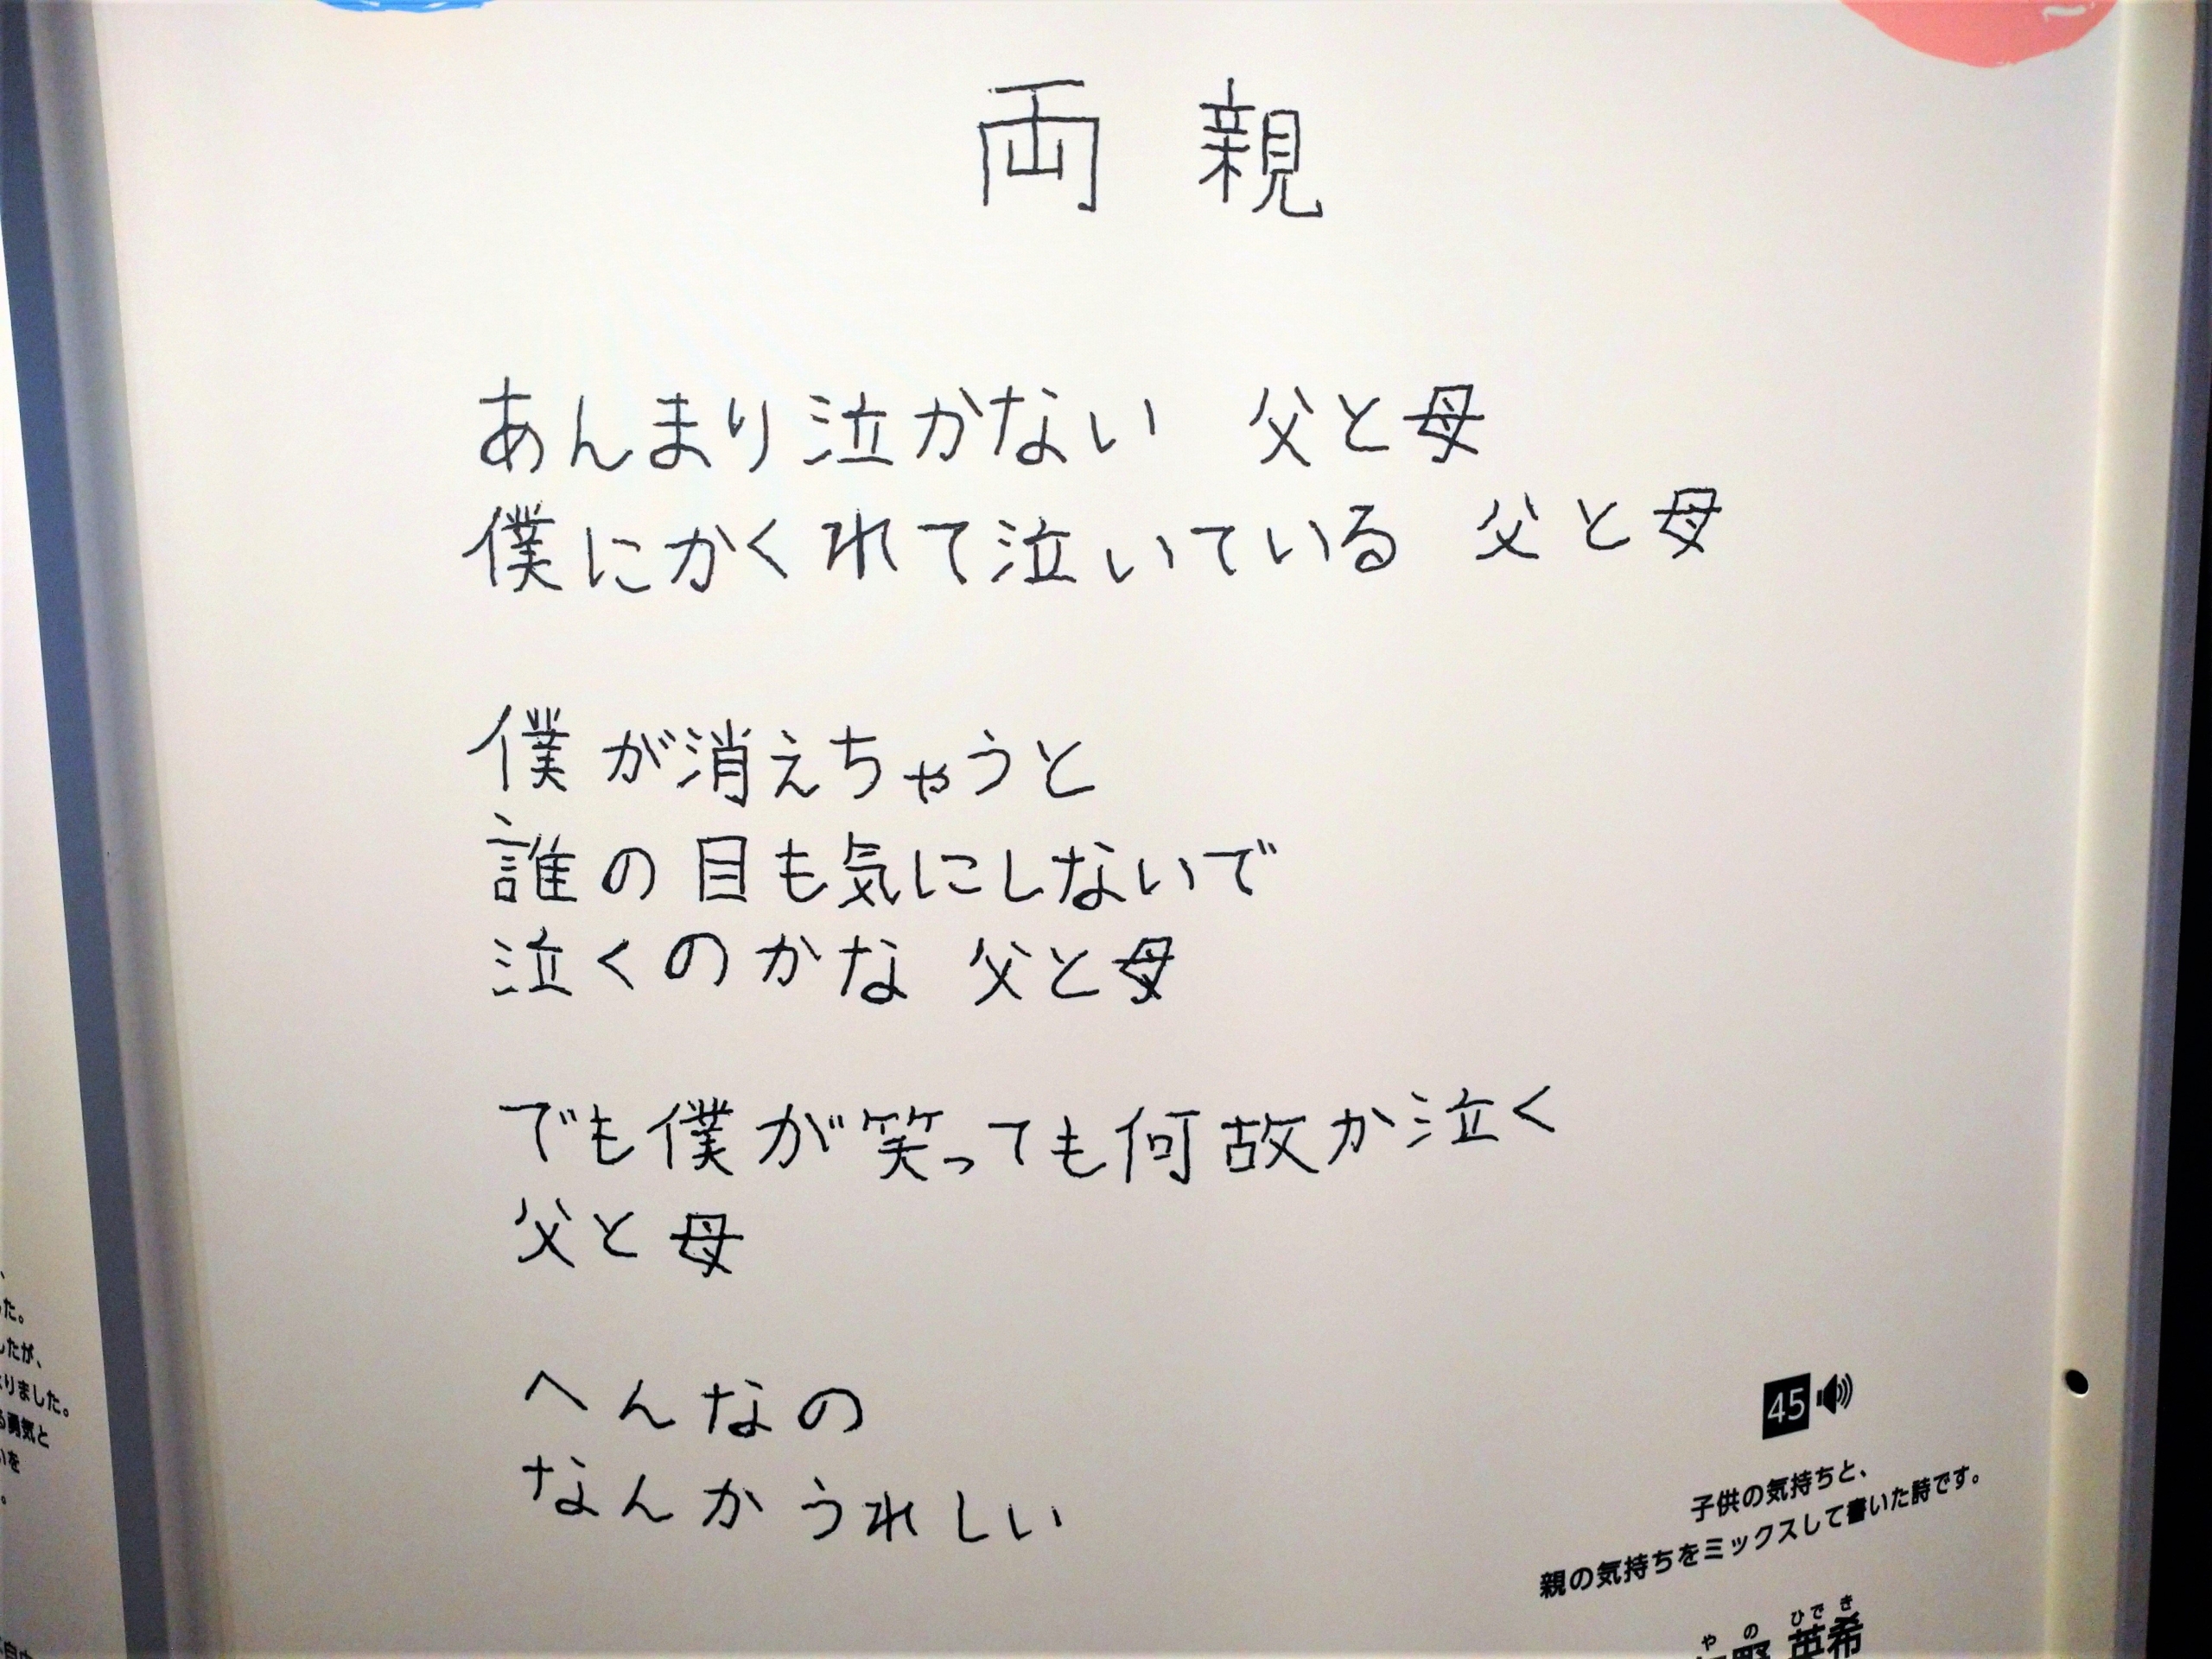 両親
あんまり泣かない 父と母
僕にかくれて泣いている 父と母
僕が消えちゃうと
誰の目も気にしないで
泣くのかな 父と母
でも僕が笑っても何故か泣く
父と母
へんなの
なんかうれしい
45
子供の気持ちと、
親の気持ちをミックスして書いた詩です。
やの ひでき
野 英希
た。
したが、
りました。
勇気と
を
。